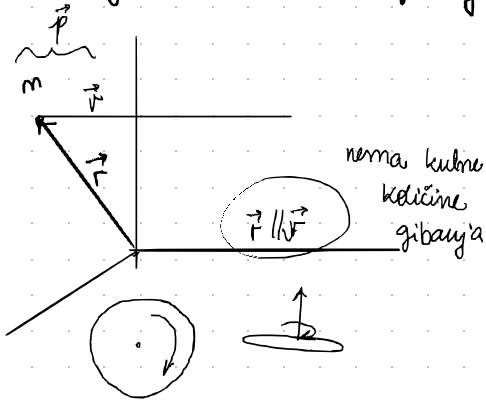 p⃗
m
v⃗
r⃗
r⃗ || v⃗
nema kutne
količine
gibanja